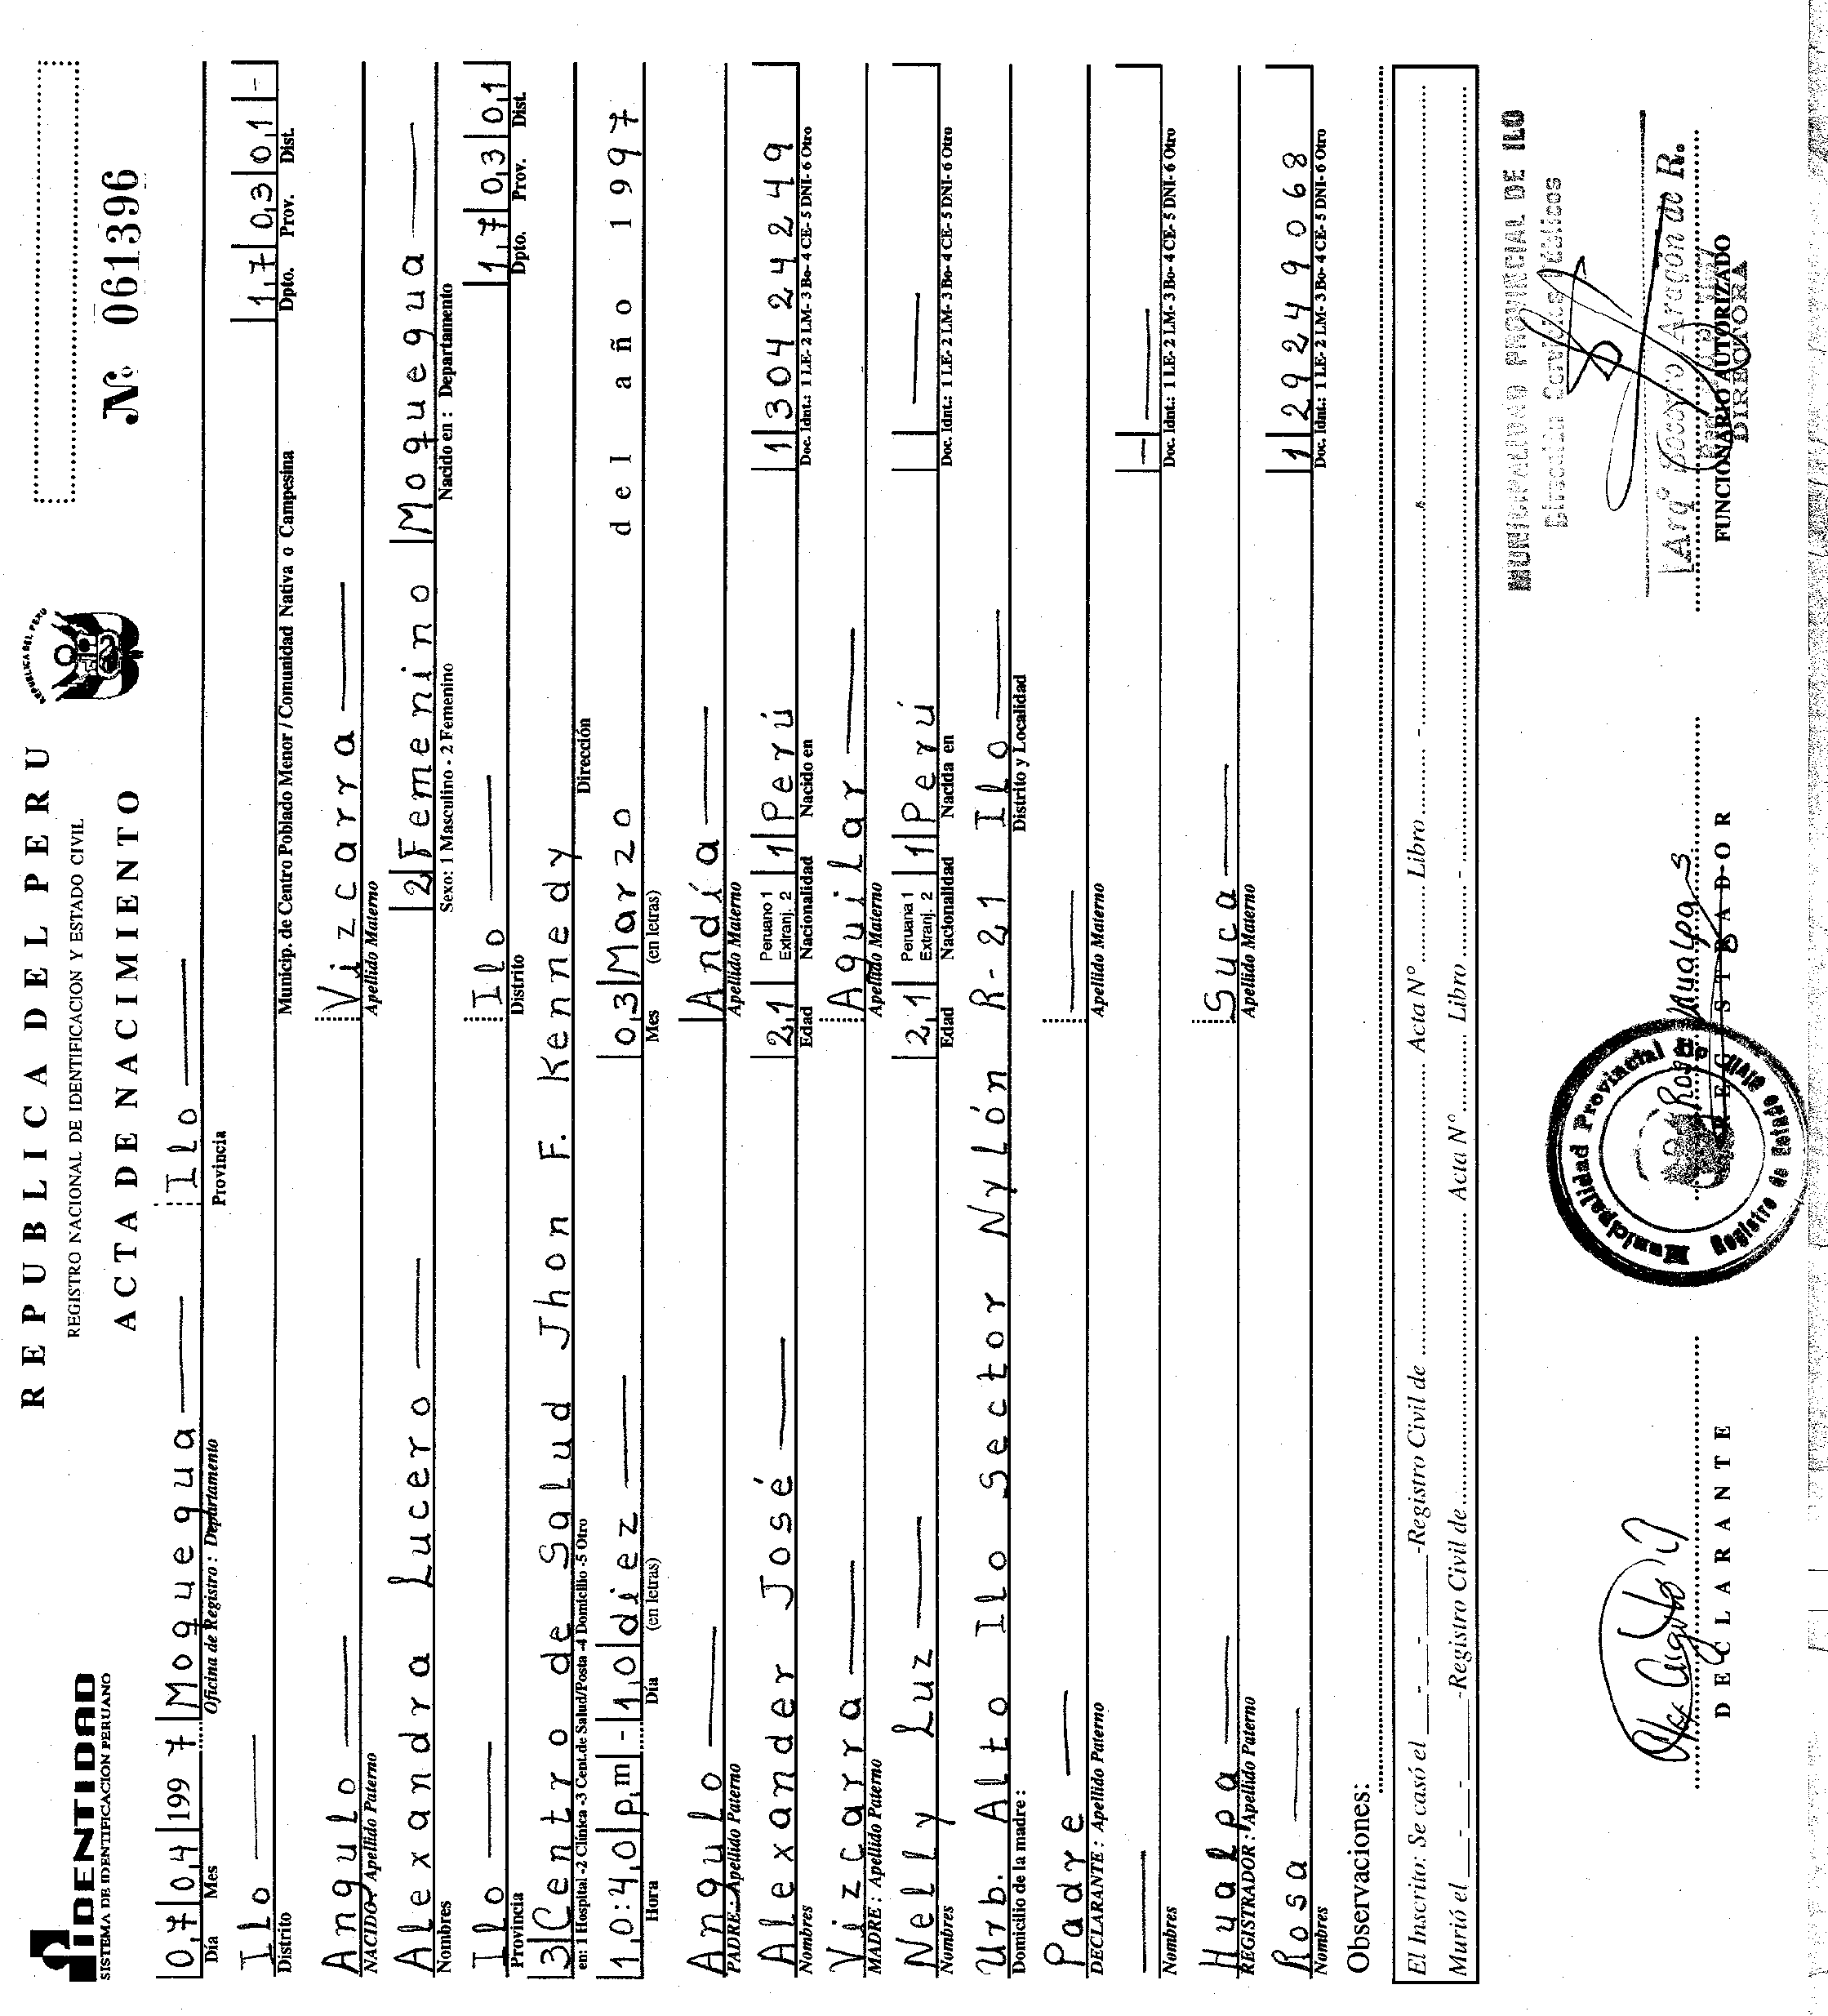 REPUBLICA DEL PERU
REGISTRO NACIONAL DE IDENTIFICACION Y ESTADO CIVIL
ACTA DE NACIMIENTO
IDENTIDAD
SISTEMA DE IDENTIFICACION PERUANO
REPUBLICA DEL PERU
Nº 061396
07 04 1997 Moquegua Ilo
Día Mes Oficina de Registro : Departamento Provincia
Ilo 17 03 01 -
Distrito Municip. de Centro Poblado Menor / Comunidad Nativa o Campesina Dpto. Prov. Dist.
Angulo Vizcarra
NACIDO : Apellido Paterno Apellido Materno
Alexandra Lucero 2 Femenino Moquegua
Nombres Sexo: 1 Masculino - 2 Femenino Nacido en : Departamento
Ilo Ilo 17 03 01
Provincia Distrito Dpto. Prov. Dist.
3 Centro de Salud Jhon F. Kennedy
en: 1 Hospital -2 Clínica -3 Cent.de Salud/Posta -4 Domicilio -5 Otro Dirección
10:40 pm - 10 diez 03 Marzo del año 1997
Hora Día (en letras) Mes (en letras)
Angulo Andía
PADRE : Apellido Paterno Apellido Materno
Alexander José 21 Peruano 1 Extranj. 2 1 Perú 1 30424249
Nombres Edad Nacionalidad Nacido en Doc. Idnt.: 1 LE- 2 LM- 3 Bo- 4 CE- 5 DNI- 6 Otro
Vizcarra Aguilar
MADRE : Apellido Paterno Apellido Materno
Nelly Luz 21 Peruana 1 Extranj. 2 1 Perú
Nombres Edad Nacionalidad Nacida en Doc. Idnt.: 1 LE- 2 LM- 3 Bo- 4 CE- 5 DNI- 6 Otro
Urb. Alto Ilo Sector Nylón R-21 Ilo
Domicilio de la madre : Distrito y Localidad
Padre
DECLARANTE : Apellido Paterno Apellido Materno
Nombres Doc. Idnt.: 1 LE- 2 LM- 3 Bo- 4 CE- 5 DNI- 6 Otro
Hualpa Suca
REGISTRADOR : Apellido Paterno Apellido Materno
Rosa 1 29249068
Nombres Doc. Idnt.: 1 LE- 2 LM- 3 Bo- 4 CE- 5 DNI- 6 Otro
Observaciones:
El Inscrito: Se casó el - - -Registro Civil de Acta Nº Libro -
Murió el - - -Registro Civil de Acta Nº Libro -
MUNICIPALIDAD PROVINCIAL DE ILO
Dirección Servicios Públicos
Municipalidad Provincial
Registro de Estado Civil
Rosa Hualpa S
Arqº Socorro Aragón de R.
DIRECTORA
DECLARANTE
REGISTRADOR
FUNCIONARIO AUTORIZADO